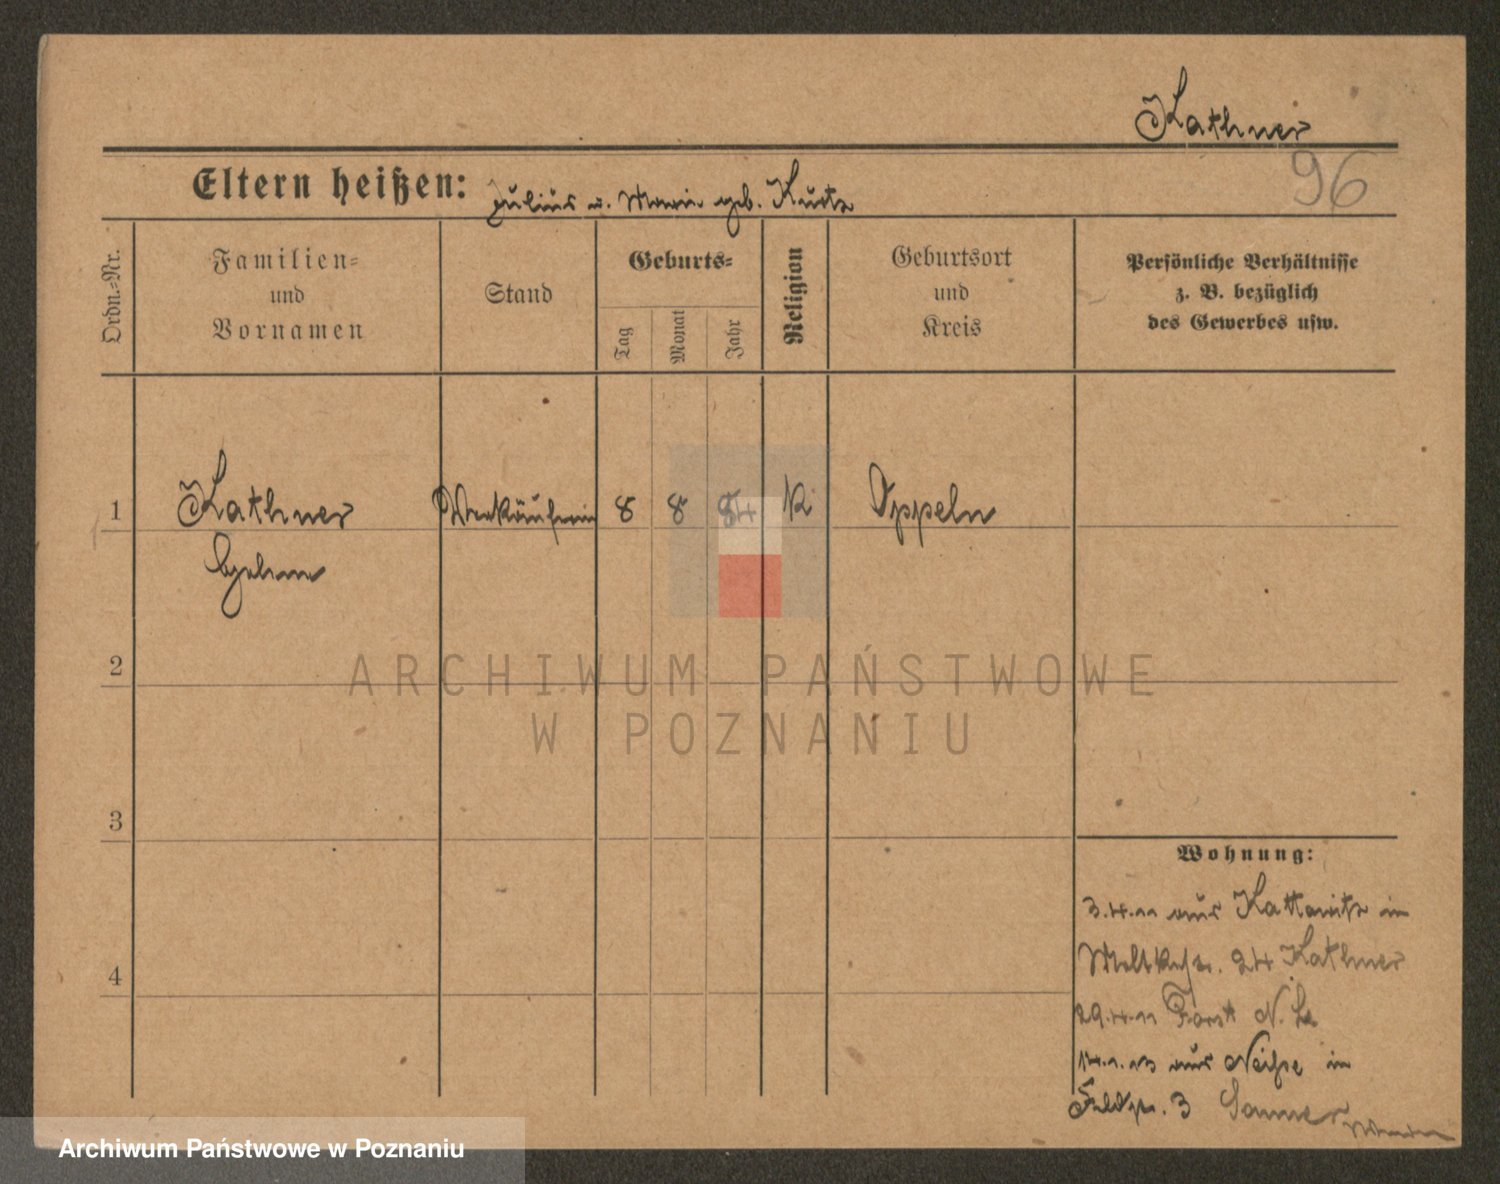 Kathner
96
Eltern heißen: Julius u. Marie geb. Kurtz
Ordn.-Nr.
Familien-
und
Vornamen
Stand
Geburts-
Tag
Monat
Jahr
Religion
Geburtsort
und
Kreis
Persönliche Verhältnisse
z. B. bezüglich
des Gewerbes usw.
1 Kathner Verkäuferin 8 8 84 k Oppeln
2
ARCHIWUM PAŃSTWOWE
W POZNANIU
3
Wohnung:
3.4.11 aus Kattowitz in
Moltkestr. 24 Kathner
4
29.4.11 Forst N. L.
14.1.13 aus Neiße in
Feldstr. 3
Archiwum Państwowe w Poznaniu